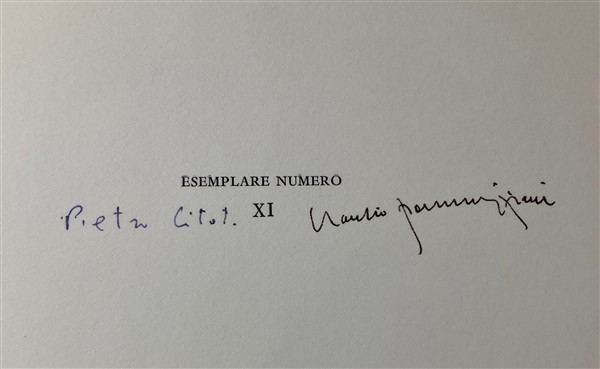 ESEMPLARE NUMERO
Pietro Citati XI Claudio Parmiggiani